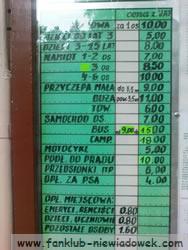 cena z VAT
OWA za 1 os 10.00
DZIECI DO LAT 3 5.00
DZIECI 3-15 LAT 8.00
NAMIOT 1-2 OS 7.00
3 OS 8.50
4-6 OS 10.00
PRZYCZEPA MAŁA do 3,5m 9.00
DUŻA pow 3,5m 11.00
TOW 6.00
SAMOCHÓD OS. 7.00
BUS 9.00 15.00
CAMP. 18.00
MOTOCYKL 5.00
PODŁ. DO PRĄDU 10.00
PRZEDSIONKI ITP 6.00
OPŁ. ZA PSA 4.00
OPŁ. MIEJSCOWA:
EMERYCI, RENCIŚCI 0.80
DZIECI, UCZNIOWIE 0.80
POZOSTAŁE OSOBY 1.60
www.fanklub-niewiadowek.com